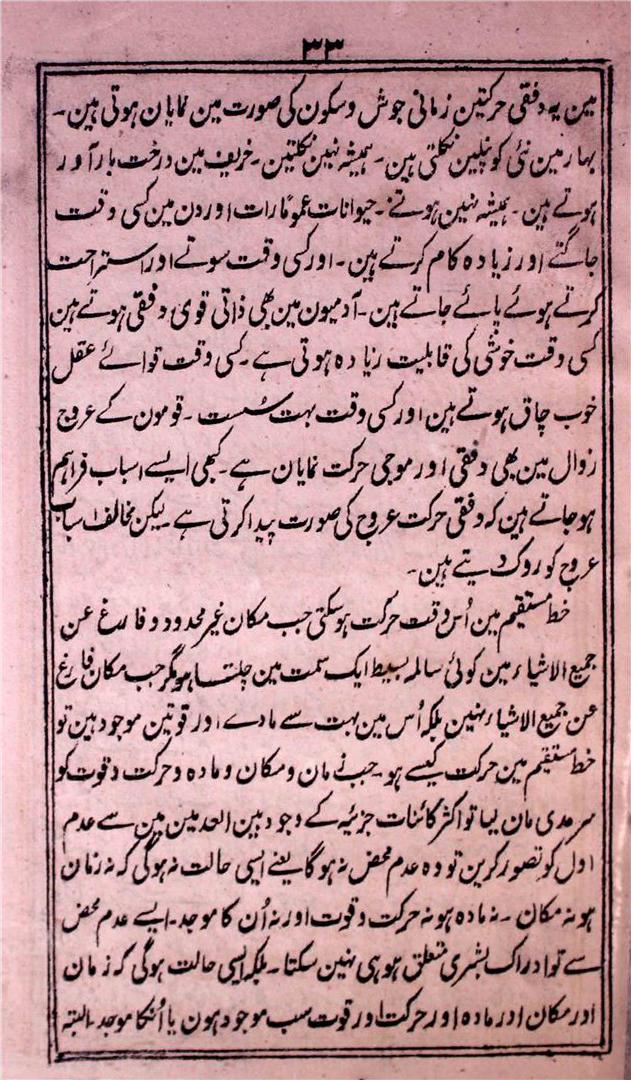 ۳۳
مین یہ دفقی حرکتین زمانی جوش و سکون کی صورت مین نمایان ہوتی ہین۔
بہار مین نئی کونپلین نکلتی ہین۔ ہمیشہ نہین نکلتین۔ خریف مین درخت بارآور
ہوتے ہین۔ ہمیشہ نہین ہوتے۔ حیوانات عموماً رات اور دن مین کسی وقت
جاگتے اور زیادہ کام کرتے ہین۔ اور کسی وقت سوتے اور استراحت
کرتے ہوئے پائے جاتے ہین۔ آدمیون مین بھی ذاتی قوی دفقی ہوتے ہین
کسی وقت خوشی کی قابلیت زیادہ ہوتی ہے۔ کسی وقت قوائے عقل
خوب چاق ہوتے ہین اور کسی وقت بہت سُست۔ قومون کے عروج
زوال مین بھی دفقی اور موجی حرکت نمایان ہے۔ کبھی ایسے اسباب فراہم
ہوجاتے ہین کہ دفقی حرکت عروج کی صورت پیدا کرتی ہے۔ لیکن مخالف اسباب
عروج کو روک دیتے ہین۔
خط مستقیم مین اُس وقت حرکت ہوسکتی جب مکان غیر محدود و فارغ عن
جمیع الاشیاء مین کوئی سالمہ بسیط ایک سمت مین چلتا ہو مگر جب مکان فارغ
عن جمیع الاشیاء نہین بلکہ اُس مین بہت سے مادے اور قوتین موجود ہین تو
خط مستقیم مین حرکت کیسے ہو۔ جب زمان و مکان و مادہ و حرکت و قوت کو
سرمدی مان لیا تو اکثر کائنات جزئیہ کے وجود بین العدمین مین سے عدم
اول کو تصور کرین تو وہ عدم محض نہ ہوگا یعنے ایسی حالت نہ ہوگی کہ نہ زمان
ہو نہ مکان۔ نہ مادہ ہو نہ حرکت و قوت اور نہ اُن کا موجد۔ ایسے عدم محض
سے تو ادراک بشری متعلق ہو ہی نہین سکتا۔ بلکہ ایسی حالت ہوگی کہ زمان
اور مکان اور مادہ اور حرکت اور قوت سب موجود ہون یا اُنکا موجد۔ البتہ